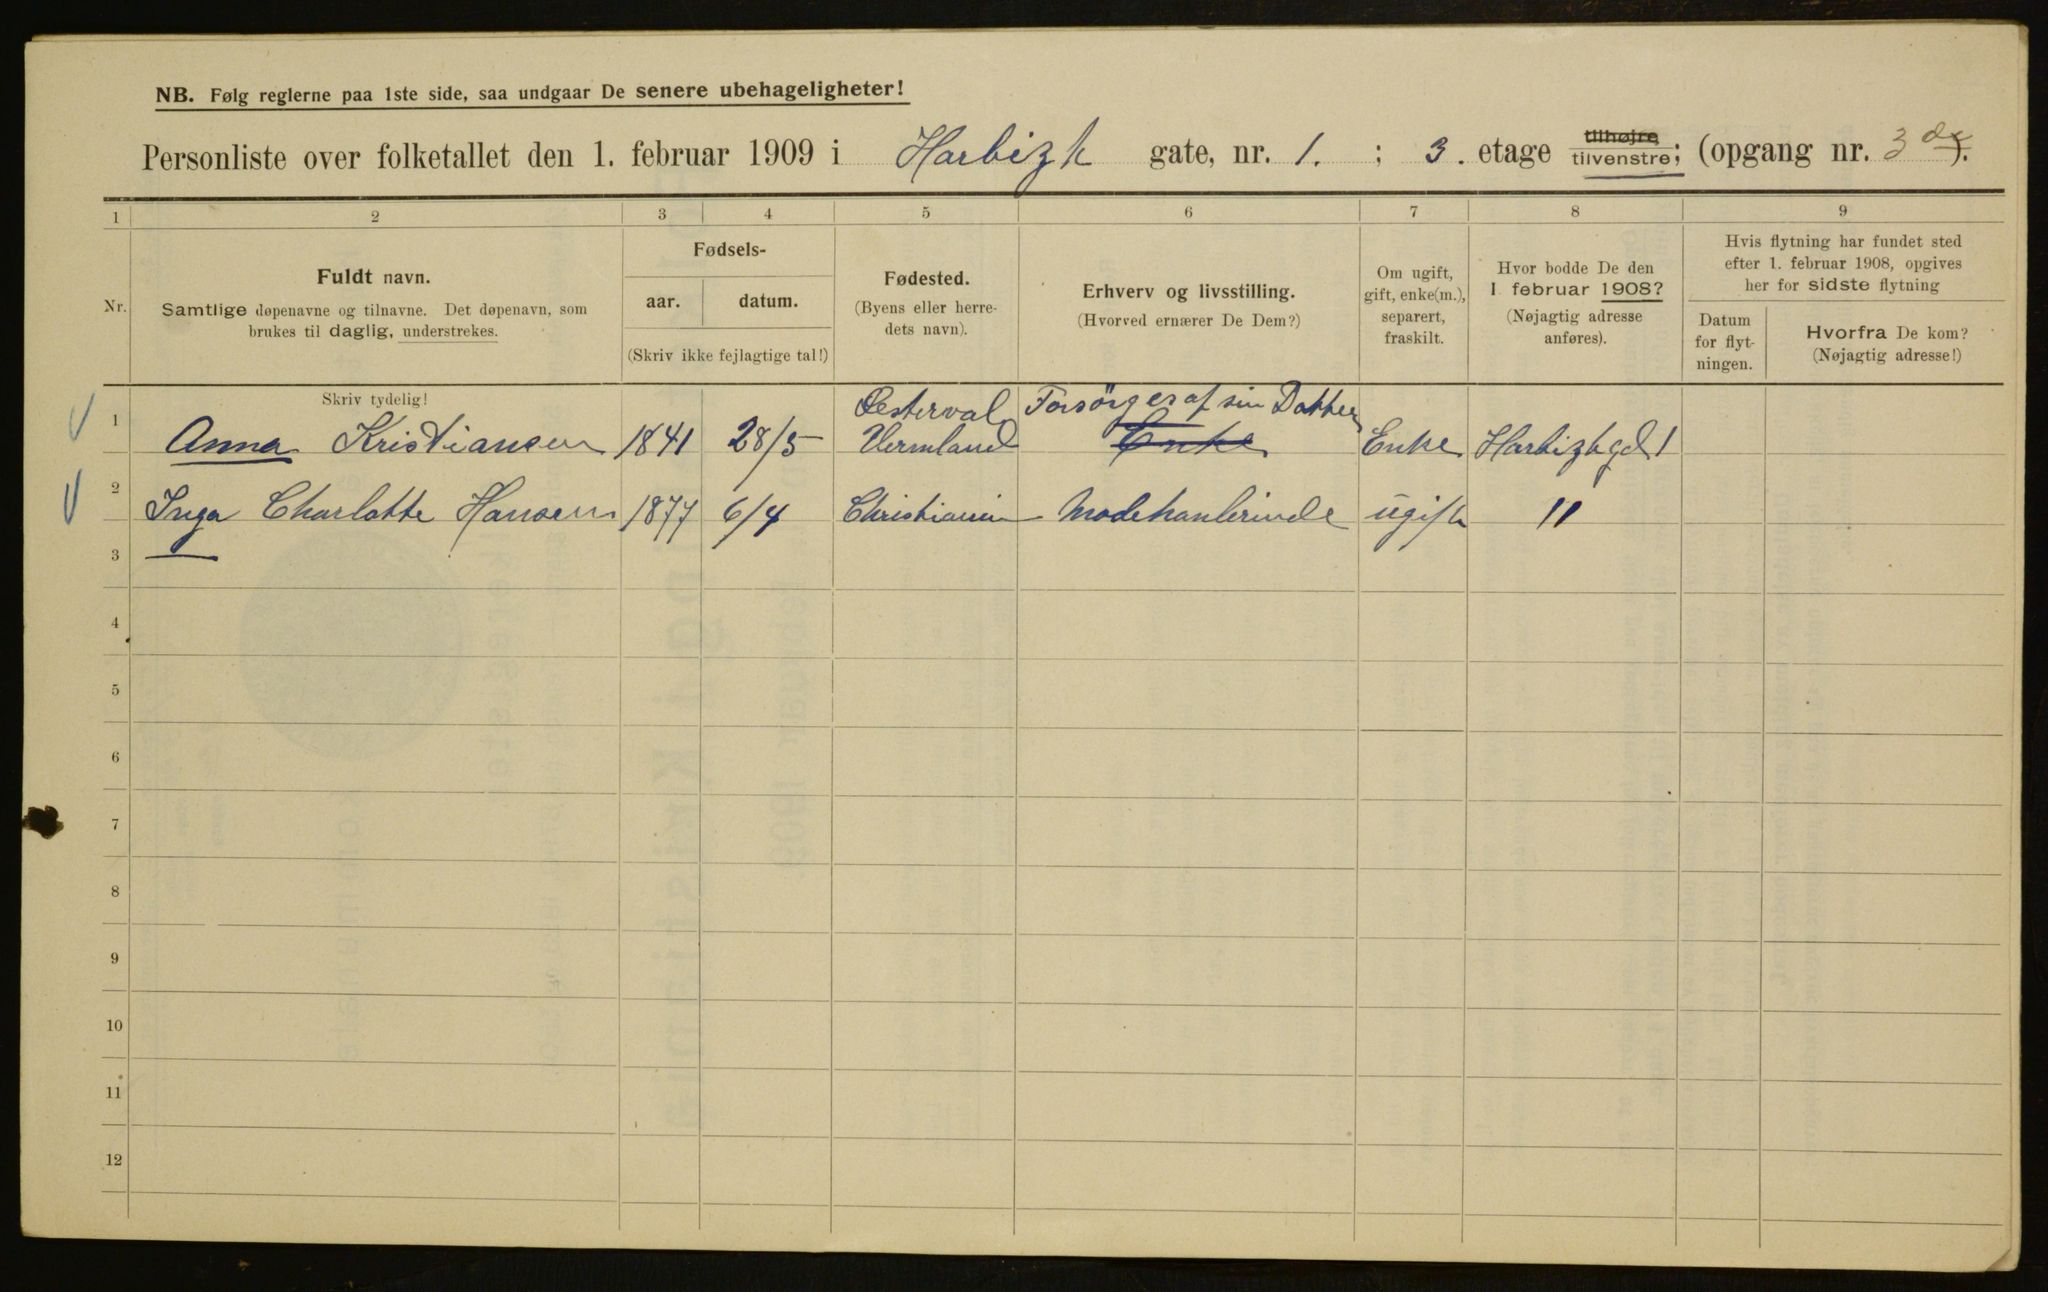 NB. Følg reglerne paa 1ste side, saa undgaar De senere ubehageligheter!
Personliste over folketallet den 1. februar 1909 i Harbizk gate, nr. 1. ; 3. etage tilhøjre, tilvenstre; (opgang nr. 3 ).
1 2 3 4 5 6 7 8 9
Nr.
Fuldt navn.
Samtlige døpenavne og tilnavne. Det døpenavn, som
brukes til daglig, understrekes.
Fødsels-
aar. datum.
(Skriv ikke fejlagtige tal!)
Fødested.
(Byens eller herre-
dets navn).
Erhverv og livsstilling.
(Hvorved ernærer De Dem?)
Om ugift,
gift, enke(m.),
separert,
fraskilt.
Hvor bodde De den
1 februar 1908?
(Nøjagtig adresse
anføres).
Hvis flytning har fundet sted
efter 1. februar 1908, opgives
her for sidste flytning
Datum
for flyt-
ningen.
Hvorfra De kom?
(Nøjagtig adresse!)
Skriv tydelig!
Oesterval Forsörges af sin Datter
1 Anna Kristiansen 1841 28/5 Vermland Enke Enke Harbizkgd 1
2 Inga Charlotte Hansen 1877 6/4 Christiania Modehanlerinde ugift 11
3
4
5
6
7
8
9
10
11
12